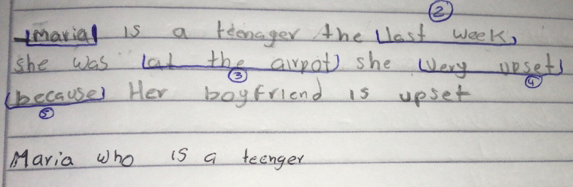 ②
(Maria) is a teenager the (last week,
she was (at the airpot) she (Very upset)
③ ④
(because) Her boyfriend is upset
⑤
Maria who is a teenger